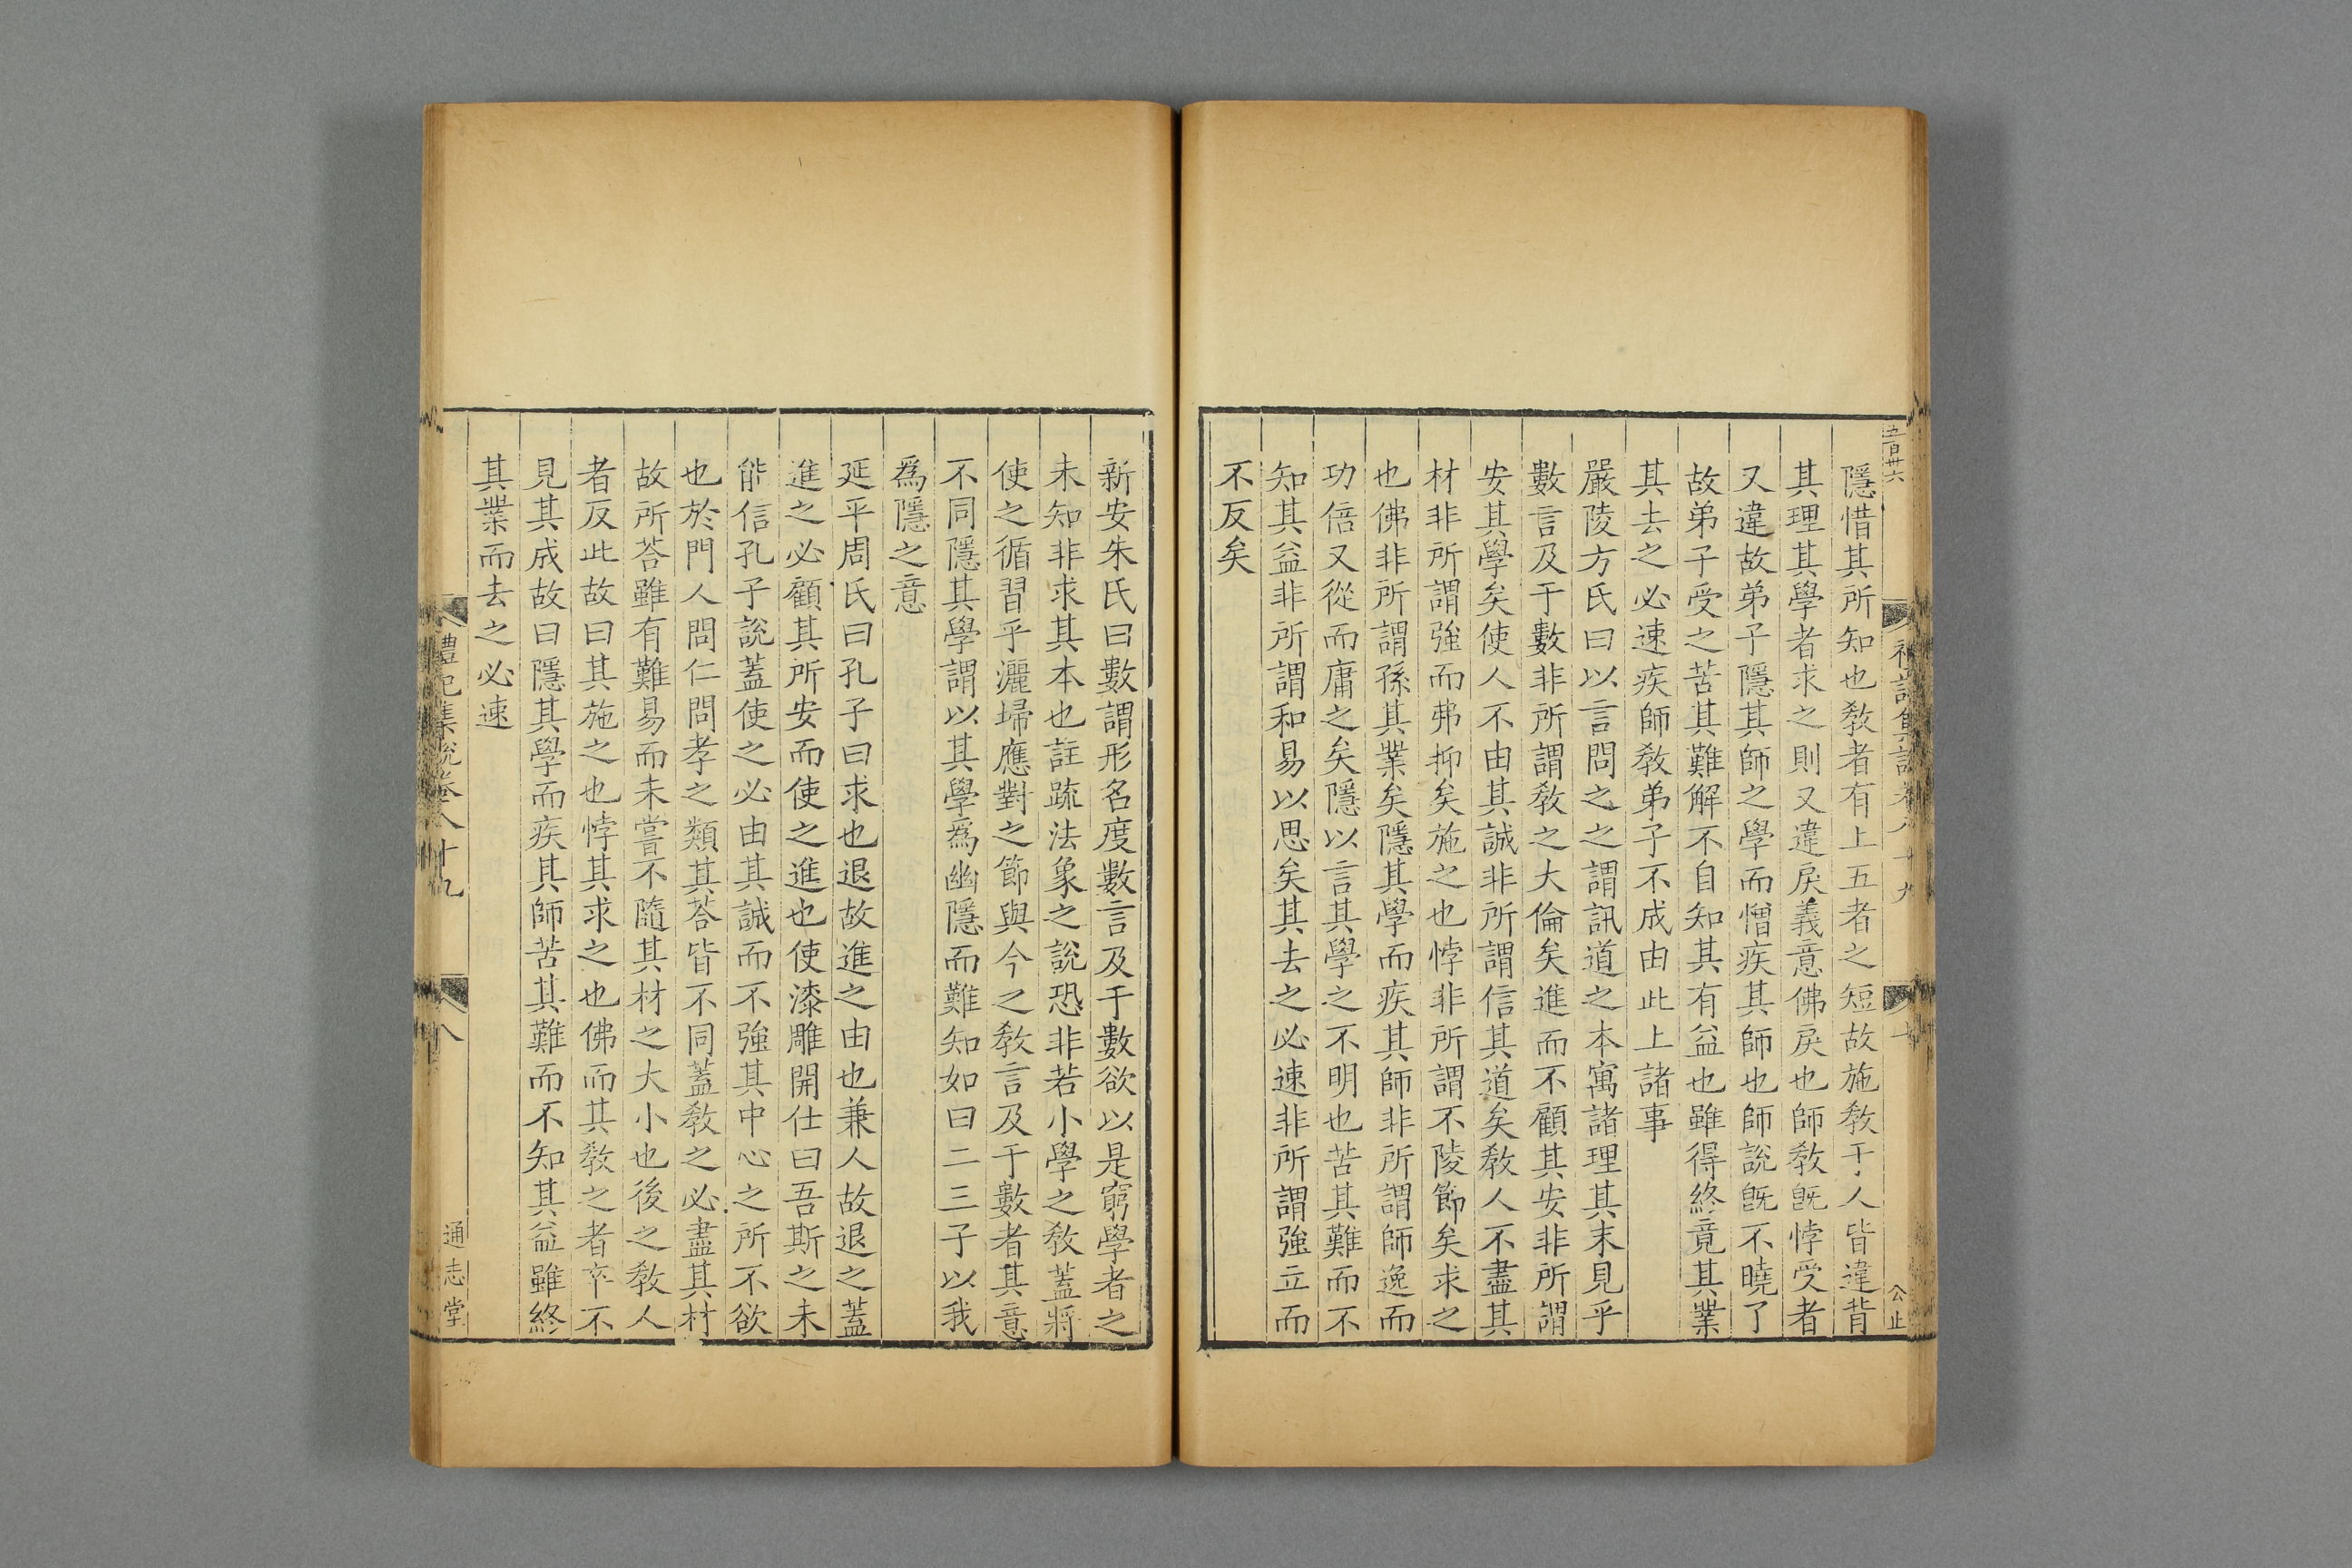 五百卅六
隱惜其所知也敎者有上五者之短故施敎于人皆違背
其理其學者求之則又違戾義意佛戾也師敎旣悖受者
又違故弟子隱其師之學而憎疾其師也師說旣不曉了
故弟子受之苦其難解不自知其有益也雖得終竟其業
其去之必速疾師敎弟子不成由此上諸事
嚴陵方氏曰以言問之之謂訊道之本寓諸理其末見乎
數言及于數非所謂敎之大倫矣進而不顧其安非所謂
安其學矣使人不由其誠非所謂信其道矣敎人不盡其
材非所謂強而弗抑矣施之也悖非所謂不陵節矣求之
也佛非所謂孫其業矣隱其學而疾其師非所謂師逸而
功倍又從而庸之矣隱以言其學之不明也苦其難而不
知其益非所謂和易以思矣其去之必速非所謂強立而
不反矣
公止
新安朱氏曰數謂形名度數言及于數欲以是窮學者之
未知非求其本也註疏法象之說恐非若小學之敎蓋將
使之循習乎灑埽應對之節與今之敎言及于數者其意
不同隱其學謂以其學爲幽隱而難知如曰二三子以我
爲隱之意
延平周氏曰孔子曰求也退故進之由也兼人故退之蓋
進之必顧其所安而使之進也使漆雕開仕曰吾斯之未
能信孔子說蓋使之必由其誠而不強其中心之所不欲
也於門人問仁問孝之類其荅皆不同蓋敎之必盡其材
故所荅雖有難易而未嘗不隨其材之大小也後之敎人
者反此故曰其施之也悖其求之也佛而其敎之者卒不
見其成故曰隱其學而疾其師苦其難而不知其益雖終
其業而去之必速
禮記集說卷八十九
八
通志堂